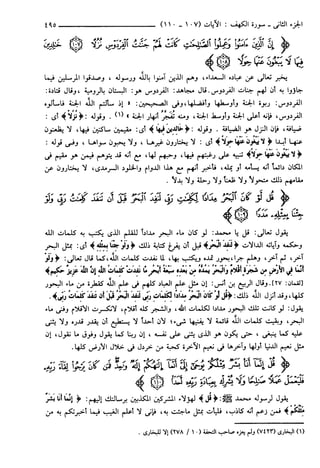 الجزء الثاني - سورة الكهف : الآيات (١٠٧ - ١١٠) ٤٩٥
إِنَّ الَّذِينَ ءَامَنُوا وَعَمِلُوا الصَّالِحَاتِ كَانَتْ لَهُمْ جَنَّاتُ الْفِرْدَوْسِ نُزُلًا خَالِدِينَ
فِيهَا لَا يَبْغُونَ عَنْهَا حِوَلًا
يخبر تعالى عن عباده السعداء، وهم الذين آمنوا بالله ورسوله ، وصدقوا المرسلين فيما
جاؤوا به أن لهم جنات الفردوس. قال مجاهد: الفردوس هو: البستان بالرومية ،وقال قتادة:
الفردوس: ربوة الجنة وأوسطها وأفضلها،وفي الصحيحين: « إذا سألتم الله الجنة فاسألوه
الفردوس، فإنه أعلى الجنة وأوسط الجنة، ومنه تُفَجَّر أنهار الجنة » (١) . وقوله :﴿نُزُلًا﴾ أي :
ضيافة، فإن النزل هو الضيافة . وقوله :﴿خَالِدِينَ فِيهَا﴾ أي : مقيمين ساكنين فيها، لا يظعنون
عنها أبدا ﴿لَا يَبْغُونَ عَنْهَا حِوَلًا﴾ أي : لا يختارون غيرها ، ولا يحبون سواها ، وفي قوله :
﴿لَا يَبْغُونَ عَنْهَا حِوَلًا﴾ تنبيه على رغبتهم فيها، وحبهم لها، مع أنه قد يتوهم فيمن هو مقيم في
المكان دائماً أنه يسأمه أو يمله، فأخبر أنهم مع هذا الدوام والخلود السرمدي، لا يختارون عن
مقامهم ذلك متحولاً ولا ظعناً ولا رحلة ولا بدلاً .
قُل لَّوْ كَانَ الْبَحْرُ مِدَادًا لِّكَلِمَاتِ رَبِّي لَنَفِدَ الْبَحْرُ قَبْلَ أَن تَنفَدَ كَلِمَاتُ رَبِّي وَلَوْ
جِئْنَا بِمِثْلِهِ مَدَدًا
يقول تعالى: قل يا محمد: لو كان ماء البحر مداداً للقلم الذي يكتب به كلمات الله
وحكمه وآياته الدالات ﴿لَنَفِدَ الْبَحْرُ﴾ قبل أن يفرغ كتابة ذلك ﴿وَلَوْ جِئْنَا بِمِثْلِهِ﴾ أي: بمثل البحر
آخر، ثم آخر، وهلم جرا،بحور تمده ويكتب بها، لما نفدت كلمات الله،كما قال تعالى: ﴿وَلَوْ
أَنَّمَا فِي الْأَرْضِ مِن شَجَرَةٍ أَقْلَامٌ وَالْبَحْرُ يَمُدُّهُ مِن بَعْدِهِ سَبْعَةُ أَبْحُرٍ مَّا نَفِدَتْ كَلِمَاتُ اللَّهِ إِنَّ اللَّهَ عَزِيزٌ حَكِيمٌ﴾
(لقمان: ٢٧).وقال الربيع بن أنس: إن مثل علم العباد كلهم في علم الله كقطرة من ماء البحور
كلها، وقد أنزل الله ذلك: ﴿قُل لَّوْ كَانَ الْبَحْرُ مِدَادًا لِّكَلِمَاتِ رَبِّي لَنَفِدَ الْبَحْرُ قَبْلَ أَن تَنفَدَ كَلِمَاتُ رَبِّي﴾.
يقول: لو كانت تلك البحور مدادا لكلمات الله، والشجر كله أقلام، لانكسرت الأقلام وفنى ماء
البحر، وبقيت كلمات الله قائمة لا يفنيها شيء؛ لأن أحداً لا يستطيع أن يقدر قدره ولا يثني
عليه كما ينبغي، حتى يكون هو الذي يثني على نفسه ، إن ربنا كما يقول وفوق ما نقول، إن
مثل نعيم الدنيا أولها وآخرها في نعيم الآخرة كحبة من خردل في خلال الأرض كلها.
قُلْ إِنَّمَا أَنَا بَشَرٌ مِّثْلُكُمْ يُوحَى إِلَيَّ أَنَّمَا إِلَهُكُمْ إِلَهٌ وَاحِدٌ فَمَن كَانَ يَرْجُوا لِقَاءَ رَبِّهِ
فَلْيَعْمَلْ عَمَلًا صَالِحًا وَلَا يُشْرِكْ بِعِبَادَةِ رَبِّهِ أَحَدًا
يقول لرسوله محمد ﷺ :﴿قُلْ﴾ لهؤلاء المشركين المكذبين برسالتك إليهم: ﴿إِنَّمَا أَنَا بَشَرٌ
مِّثْلُكُمْ﴾ فمن زعم أنه كاذب، فليأت بمثل ماجئت به، فإني لا أعلم الغيب فيما أخبرتكم به من
(١) البخاري (٧٤٢٣) ولم يعزه صاحب التحفة (١٠ / ٢٧٨) إلا للبخاري .